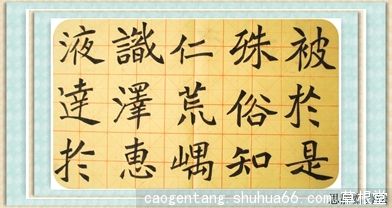 被於是
殊俗知
仁荒嵎
識澤惠
液達於
草根堂
caogentang.shuhua66.com